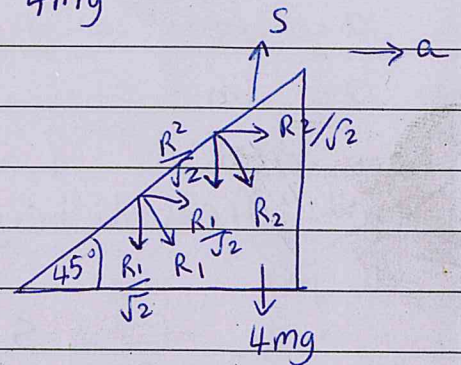 4mg
S
→ a
R²/√2
R2/√2
R1/√2
R2
45°
R1/√2
R1
4mg